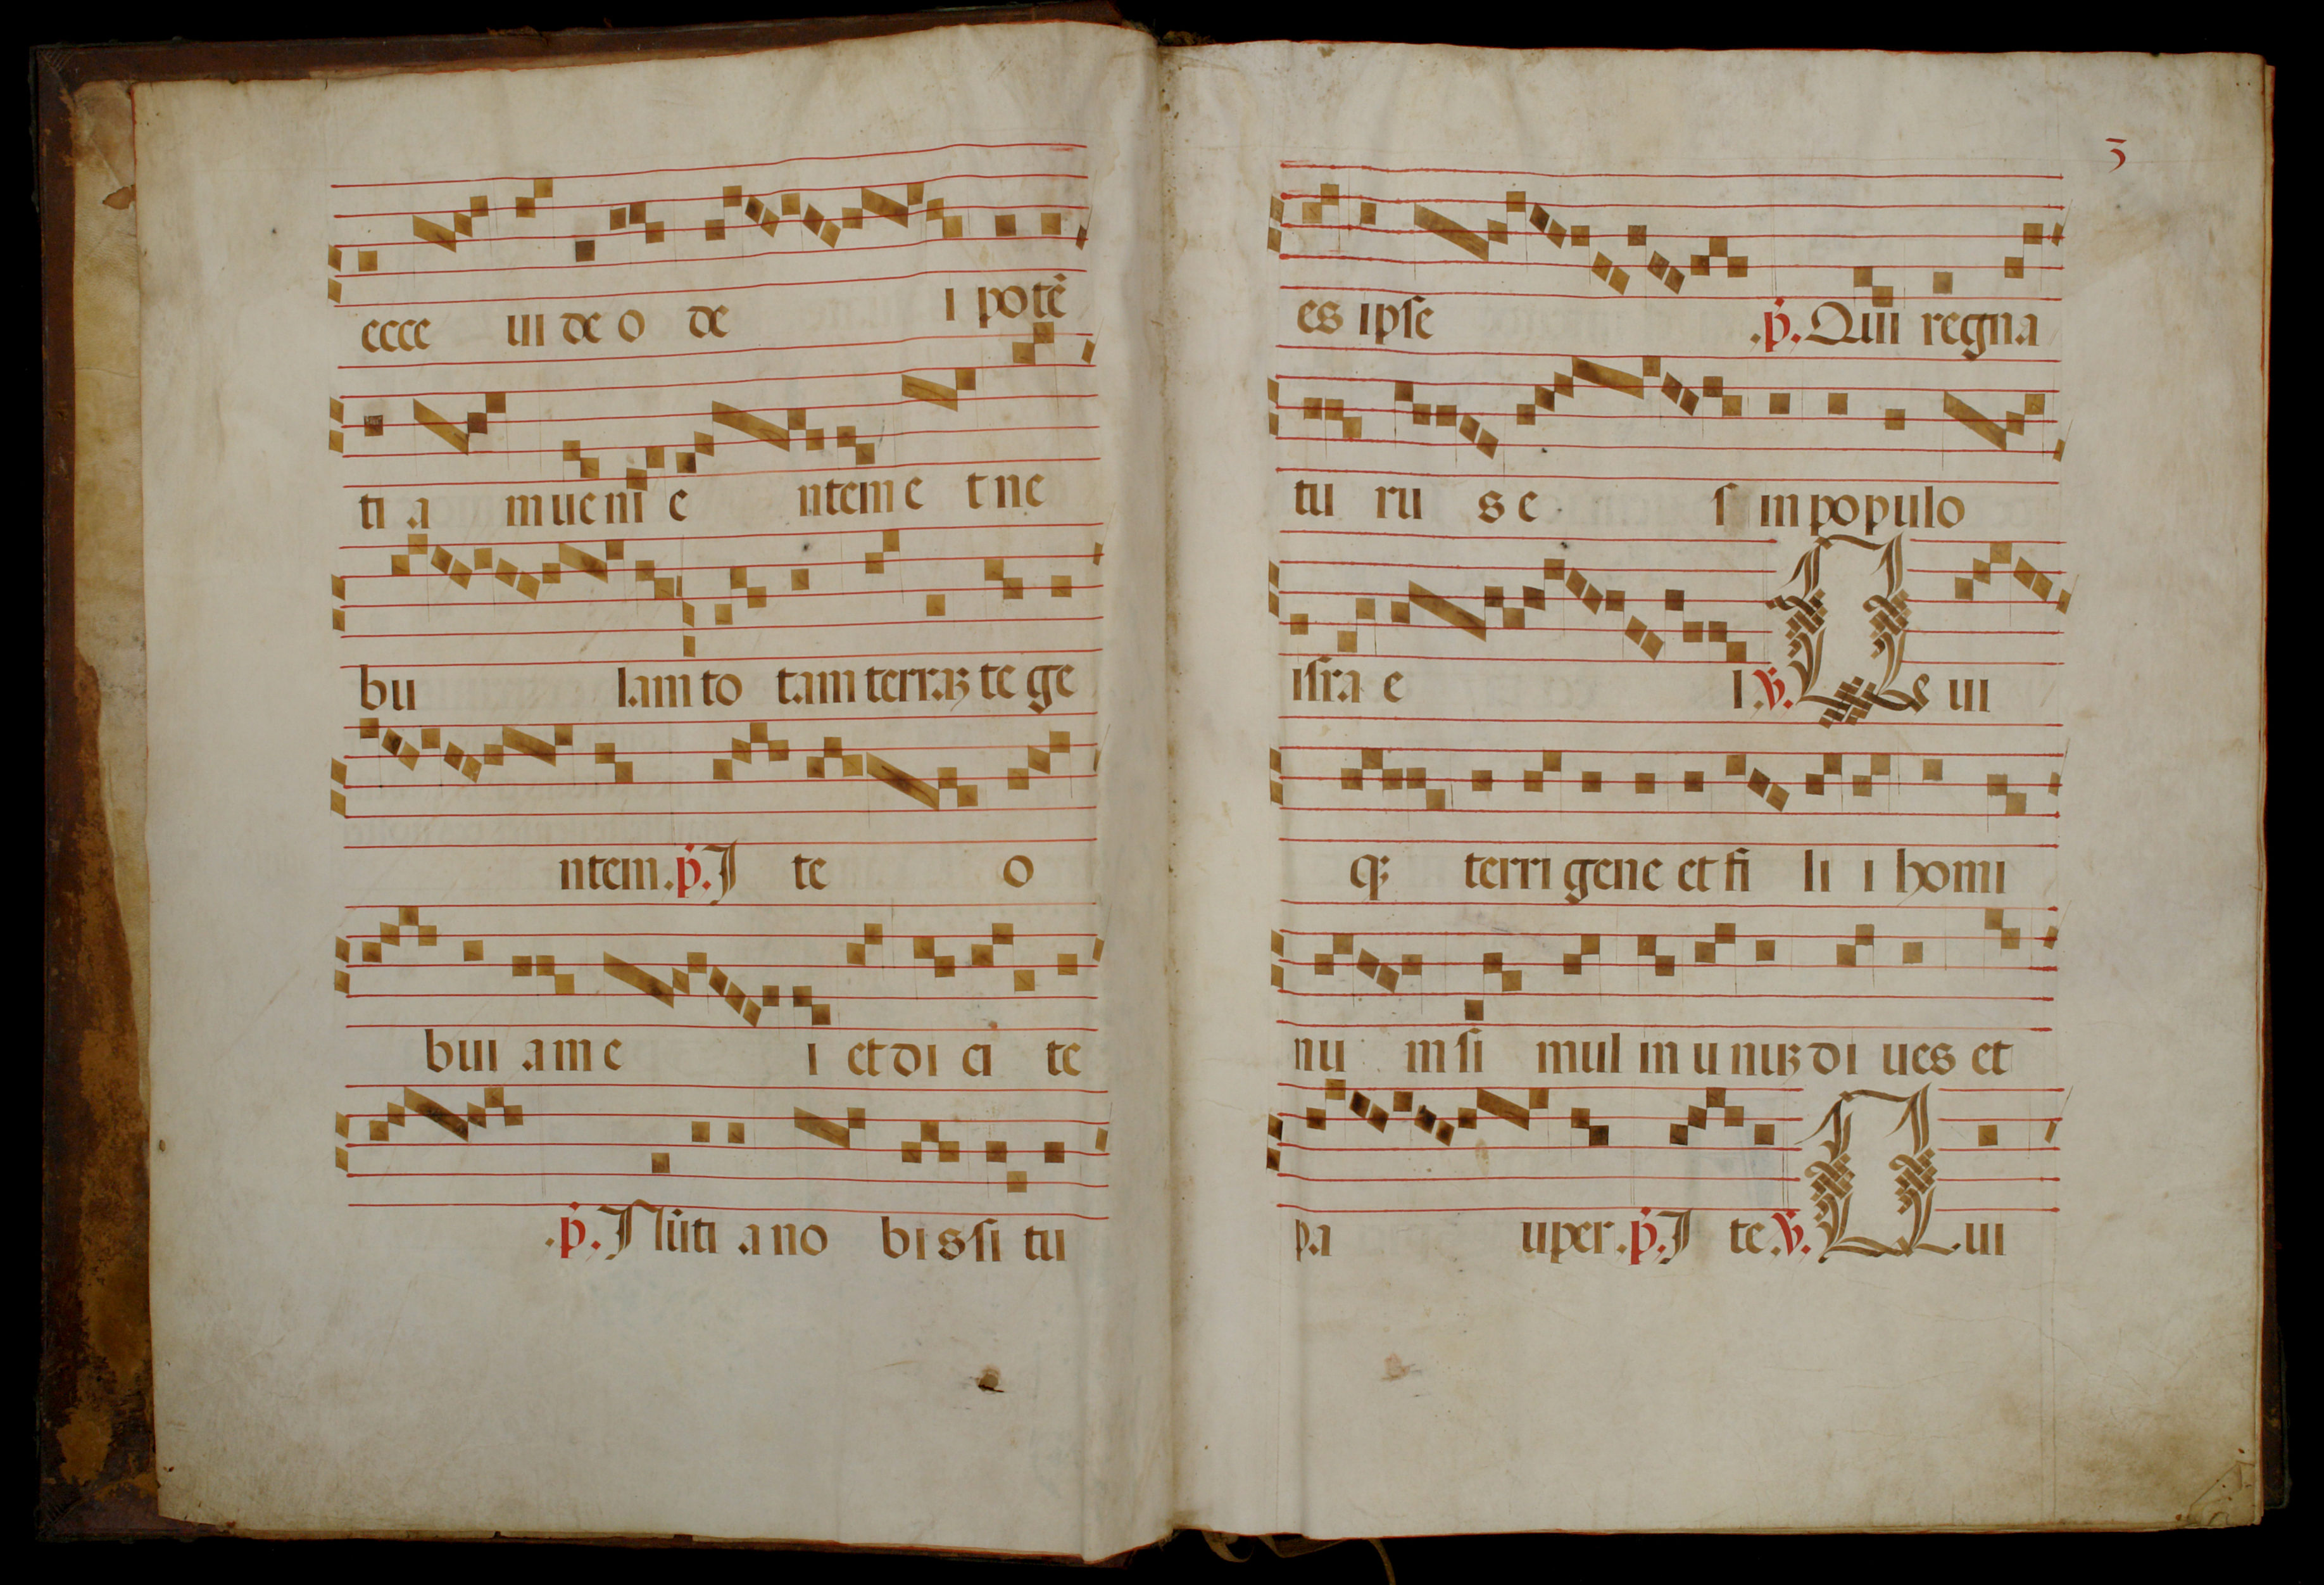 ecce ui de o de i potē
ti a m ue ni e ntem e t ne
bu lam to tam terraꝫ te ge
ntem .p̄. I te o
bui am e i et di ci te
.p̄. Nūti a no bis si tu
3
es ipse .p̄. Qui regna
tu ru s e s in populo
isra e l .v̄. Q ui
qꝫ terri gene et fi li i homi
nu m si mul in u nuꝫ di ues et
pa uper .p̄. I te .v̄. Q ui